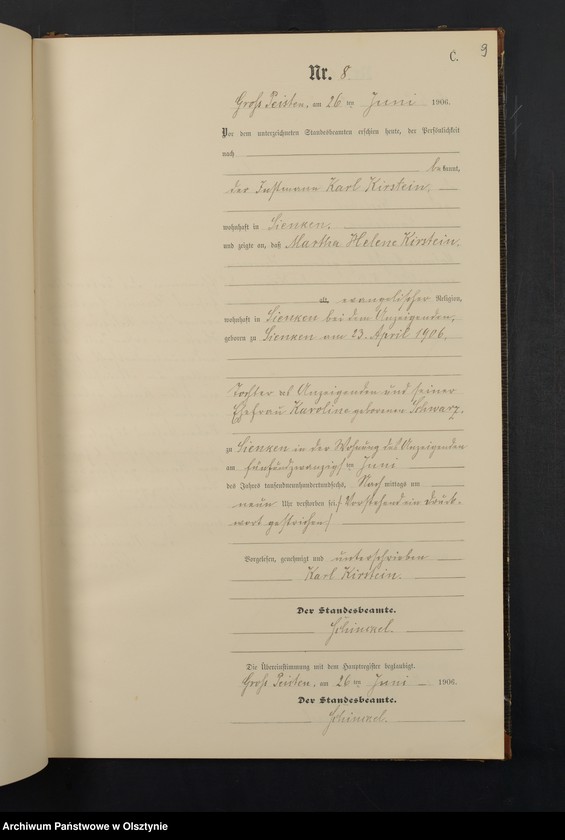 C.
9
Nr. 8.
Groß Peisten, am 26 ten Juni 1906.
Vor dem unterzeichneten Standesbeamten erschien heute, der Persönlichkeit
nach
bekannt,
der Instmann Karl Kirstein,
wohnhaft in Sienken,
und zeigte an, daß Martha Helene Kirstein,
alt, evangelischer Religion,
wohnhaft in Sienken bei dem Anzeigenden,
geboren zu Sienken am 23. April 1906,
Tochter des Anzeigenden und seiner
Ehefrau Karoline geborenen Schwarz,
zu Sienken in der Wohnung des Anzeigenden
am fünfundzwanzigsten Juni
des Jahres tausendneunhundertundsechs, Nachmittags um
neun Uhr verstorben sei. (Vorstehend ein Druck-
wort gestrichen)
Vorgelesen, genehmigt und unterschrieben
Karl Kirstein.
Der Standesbeamte.
Schinckel.
Die Übereinstimmung mit dem Hauptregister beglaubigt.
Groß Peisten, am 26 ten Juni 1906.
Der Standesbeamte.
Schinckel.
Archiwum Państwowe w Olsztynie